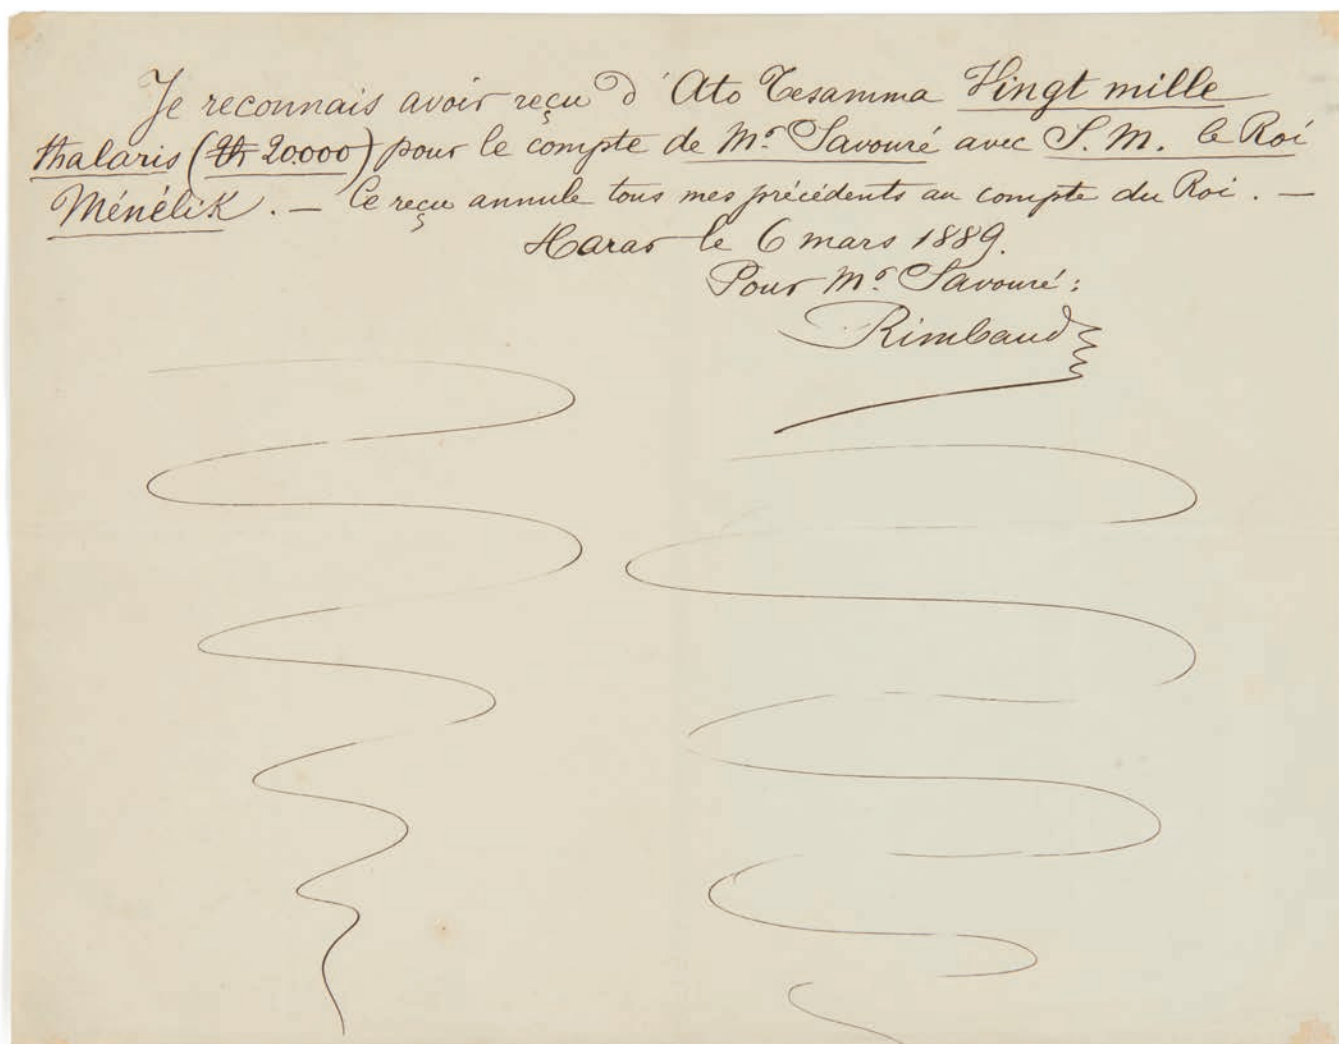 Je reconnais avoir reçu d'Ato Tesamma Vingt mille
thalaris (th 20.000) pour le compte de Mr. Savouré avec S. M. le Roi
Ménélik. — Ce reçu annule tous mes précédents au compte du Roi. —
Harar le 6 mars 1889.
Pour Mr. Savouré:
Rimbaud